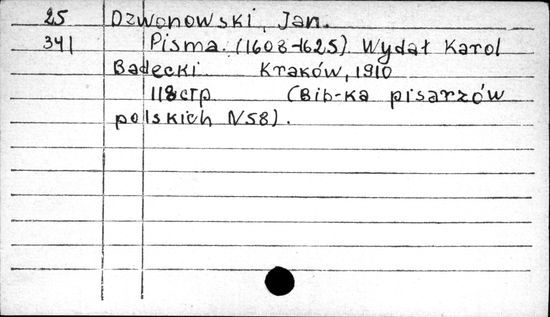 25 Dzwonowski, Jan.
341 Pisma. (1608-1625). Wydał Karol
Badecki Kraków, 1910
118 стр (Bib-ka pisarzów
polskich N58).